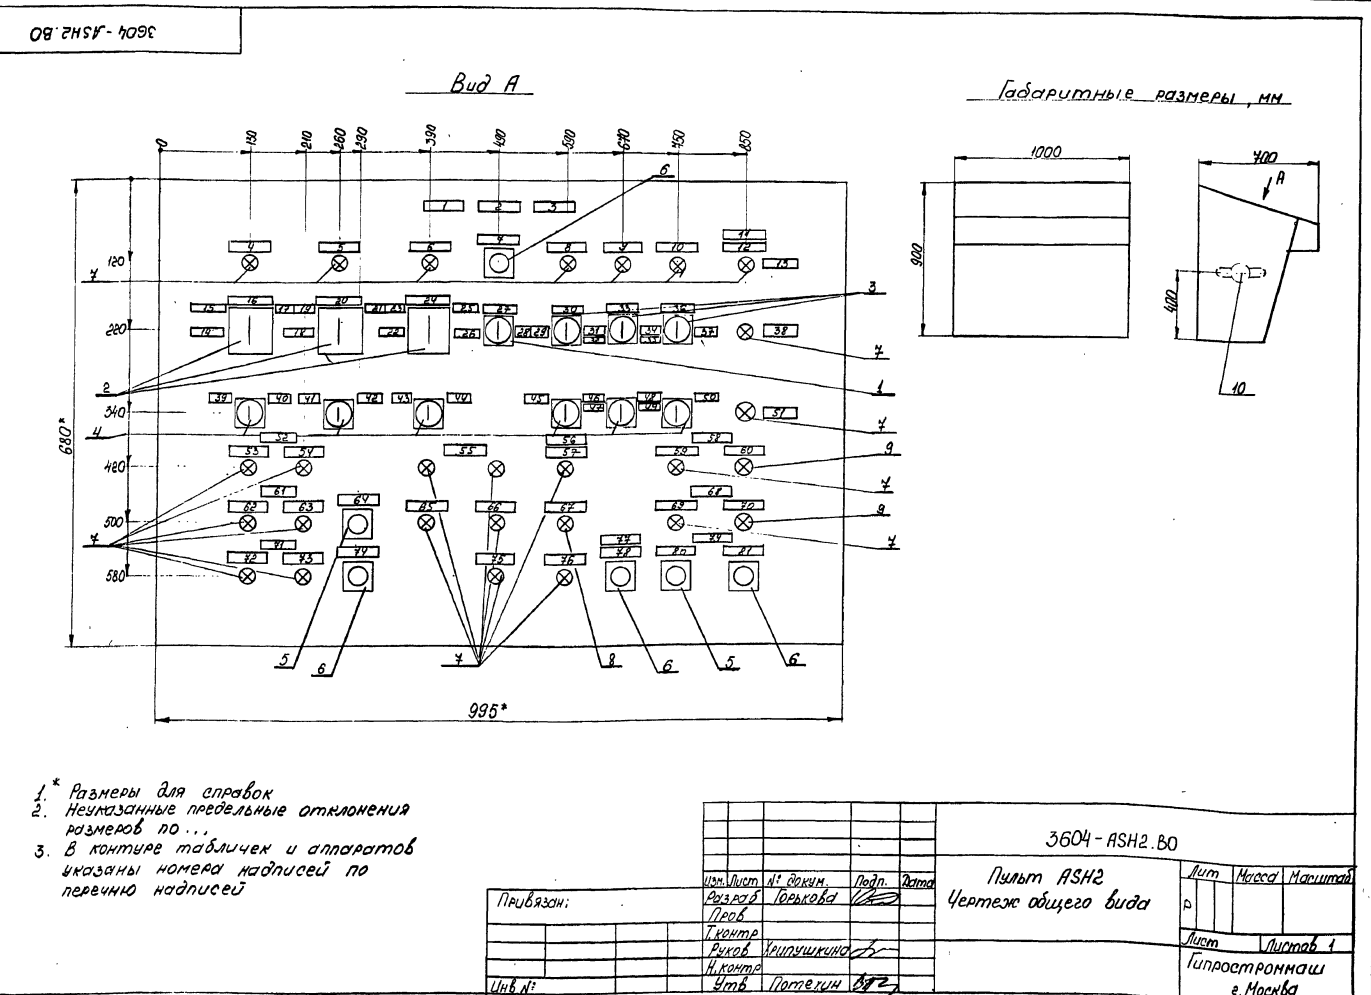 3604-ASH2.ВО
Вид А
Габаритные размеры, мм
0 130 210 260 290 390 490 590 670 750 850
6
1 2 3
4 5 6 7 8 9 10 11
12
13
120
7
15 16 17 19 20 21 23 24 25 27 30 33 36
3
220
14 18 22 26 28 29 31 32 34 35 37 38
7
2
1
39 40 41 42 43 44 45 46 48 50
340
47 49 51
4
7
52 56 58
680*
53 54 55 57 59 60
9
420
7
61 68
62 63 64 65 66 67 69 70
9
500
7
71 74 77 79
7
72 73 75 76 78 80 81
580
5 6 7 8 6 5 6
995*
1000
900
700
А
400
10
1.* Размеры для справок
2. Неуказанные предельные отклонения
размеров по...
3. В контуре табличек и аппаратов
указаны номера надписей по
перечню надписей
Привязан:
Инв №:
3604-ASH2.ВО
Изм. Лист № докум. Подп. Дата
Разраб Горькова
Пров
Т.контр
Руков Хрипушкина
Н.контр
Утв Потехин
Пульт ASH2
Чертеж общего вида
Лит Масса Масштаб
Р
Лист Листов 1
Гипростроммаш
г. Москва